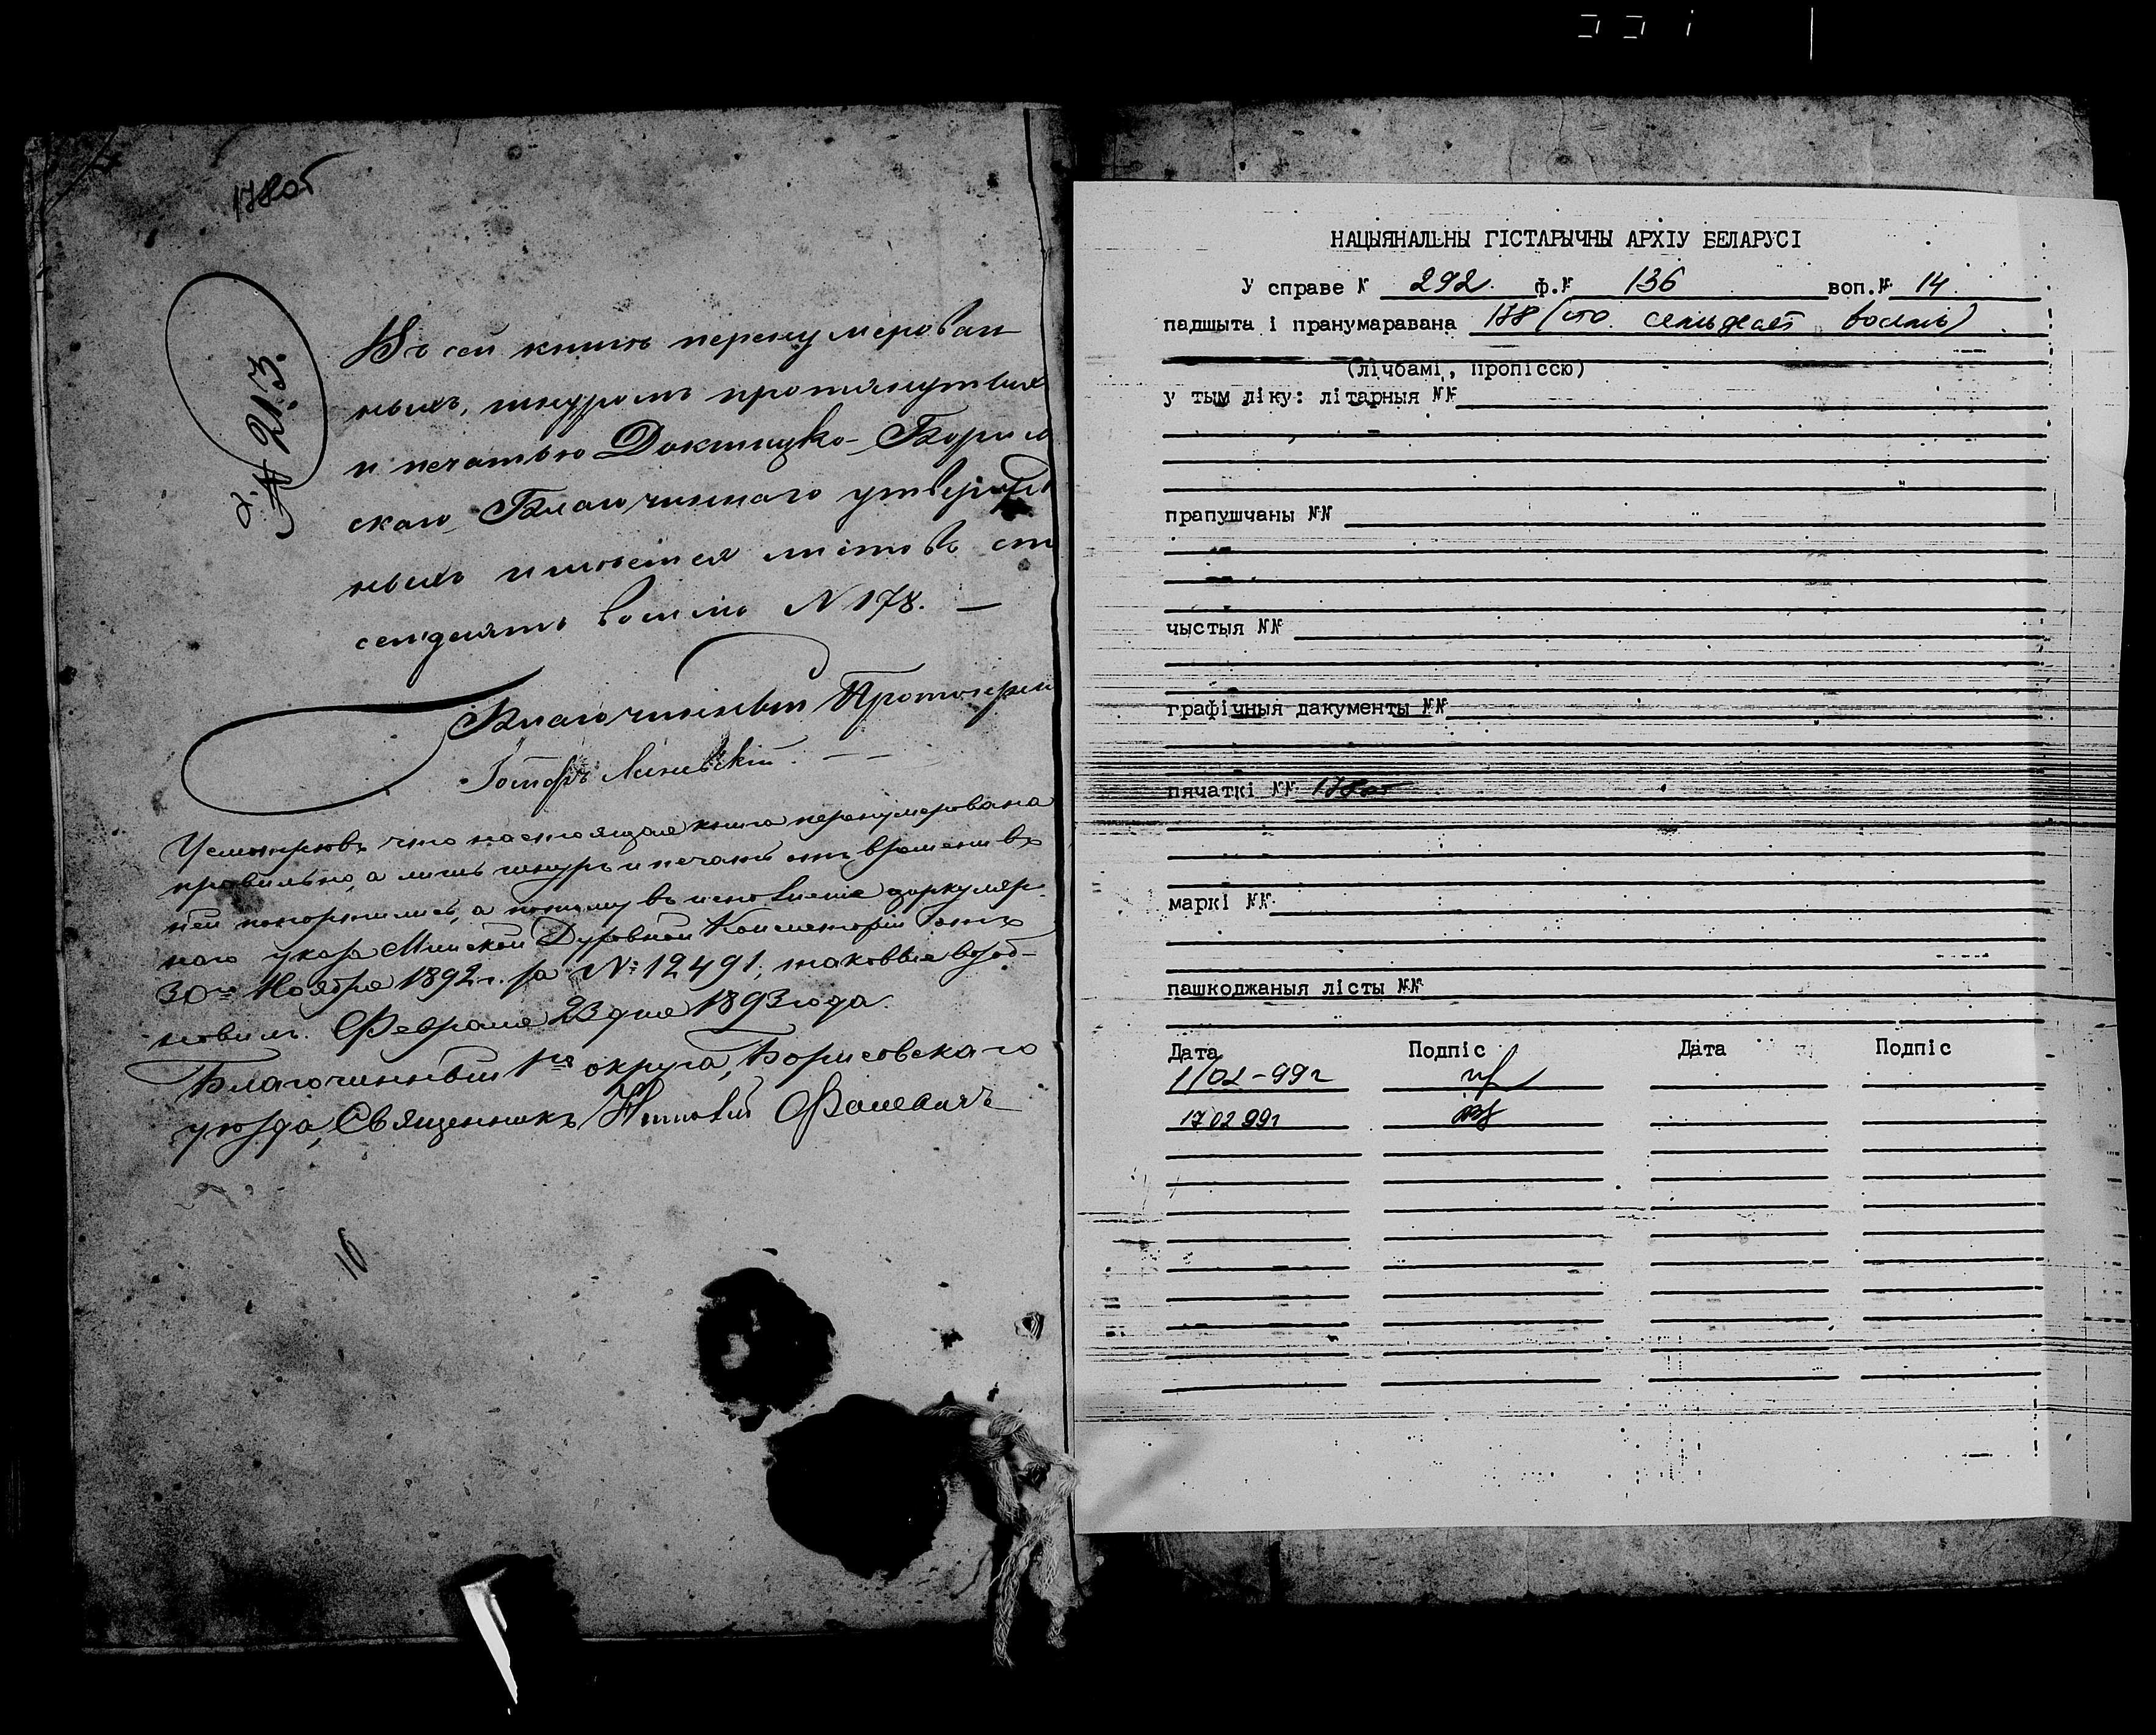 178об
№ 213.
Въ сей книгѣ перенумерован
ныхъ, шнуромъ протянутыхъ
и печатью Докшицко-Борисов
скаго Благочиннаго утвержден
ныхъ имѣется листовъ сто
семдесятъ восемь N 178. —
Благочинный Протоіерей
Іосифъ Линевскій. — —
Усмотрѣвъ что настоящая книга перенумерована
правильно, а лишь шнуръ и печать отъ времени въ
ней попортились, а потому въ исполненіе циркуляр-
наго указа Минской Духовной Консисторіи отъ
30го Ноября 1892 г. за № 12491, таковые возоб-
новилъ. Февраля 23 дня 1893 года.
Благочинный 1го округа, Борисовскаго
уѣзда, Священникъ Фалевичъ
НАЦЫЯНАЛЬНЫ ГІСТАРЫЧНЫ АРХІУ БЕЛАРУСІ
У справе № 292. ф.№ 136 воп.№ 14.
падшыта і пранумаравана 178 (сто семьдесят восемь)
(лічбамі, пропіссю)
у тым ліку: літарныя №№
прапушчаны №№
чыстыя №№
графічныя дакументы №№
пячаткі №№ 178об
маркі №№
пашкоджаныя лісты №№
Дата Подпіс Дата Подпіс
1/02-99г
17 02 99г